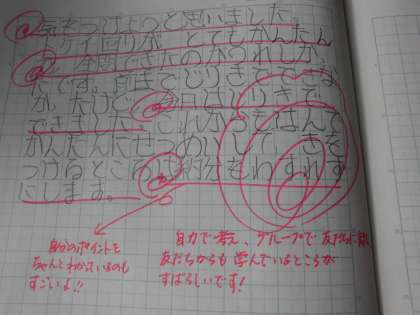 気をつけようと思いました。
回りが、とてもかんたん
に、今回できたのがうれしかっ
たです。前まではじりきでできな
か、たけど、今日はじりきで
できました。これからもはんで
かんたんにせつめいして、きを
つけるところは約分をわすれず
にします。
自分のポイントを
ちゃんとわかっているのも
すごいよ!!
自力で考え、グループで友だちに
友だちからも学んでいるところが
すばらしいです!